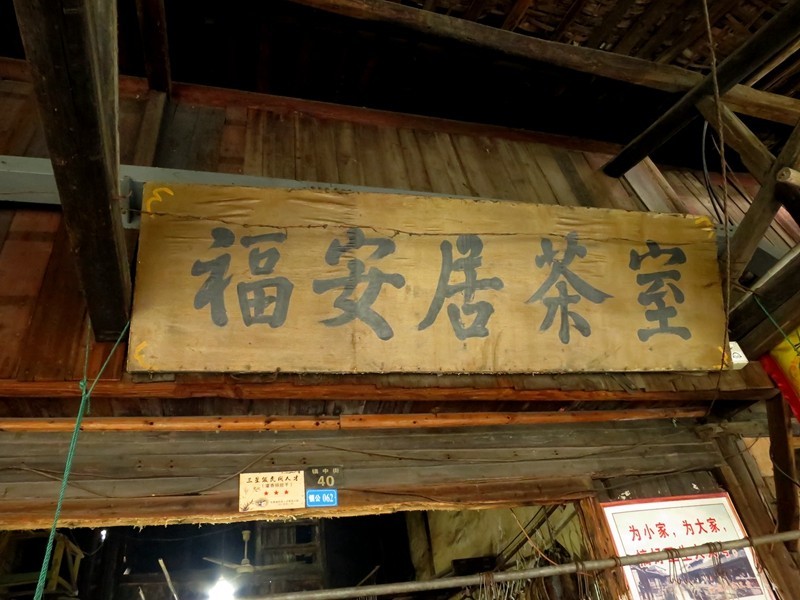 福安居茶室
三星级民间人才
★★★
镇中街
40
镇公 062
为小家，为大家，